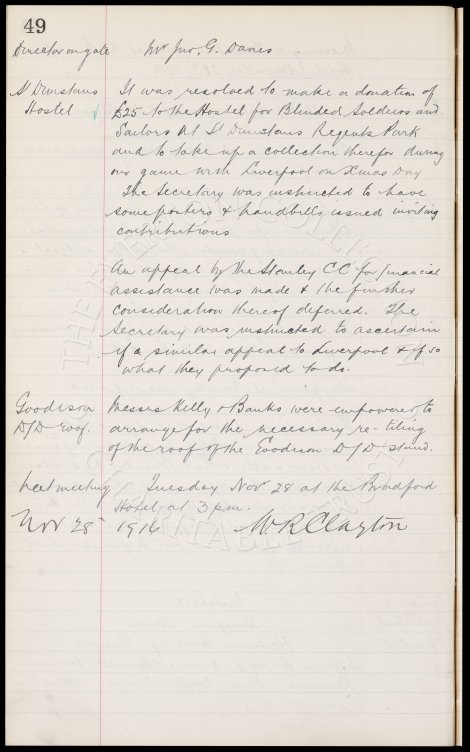 49
Director in gate Mr Jno. G. Davies
St Dunstans It was resolved to make a donation of
Hostel £25 to the Hostel for Blinded Soldiers and
Sailors at St Dunstans Regents Park
and to take up a collection therefor during
our game with Liverpool on Xmas Day
The Secretary was instructed to have
some posters & handbills issued inviting
contributions
An appeal by the Stanley CC for financial
assistance was made & the further
consideration thereof deferred. The
Secretary was instructed to ascertain
if a similar appeal to Liverpool & if so
what they proposed to do.
Goodison Messrs Kelly & Banks were empowered to
D/D roof. arrange for the necessary re-tiling
of the roof of the Goodison D/D stand.
Next meeting Tuesday Nov 28 at the Bradford
Hotel at 3 pm.
Nov 28 1916 W R Clayton